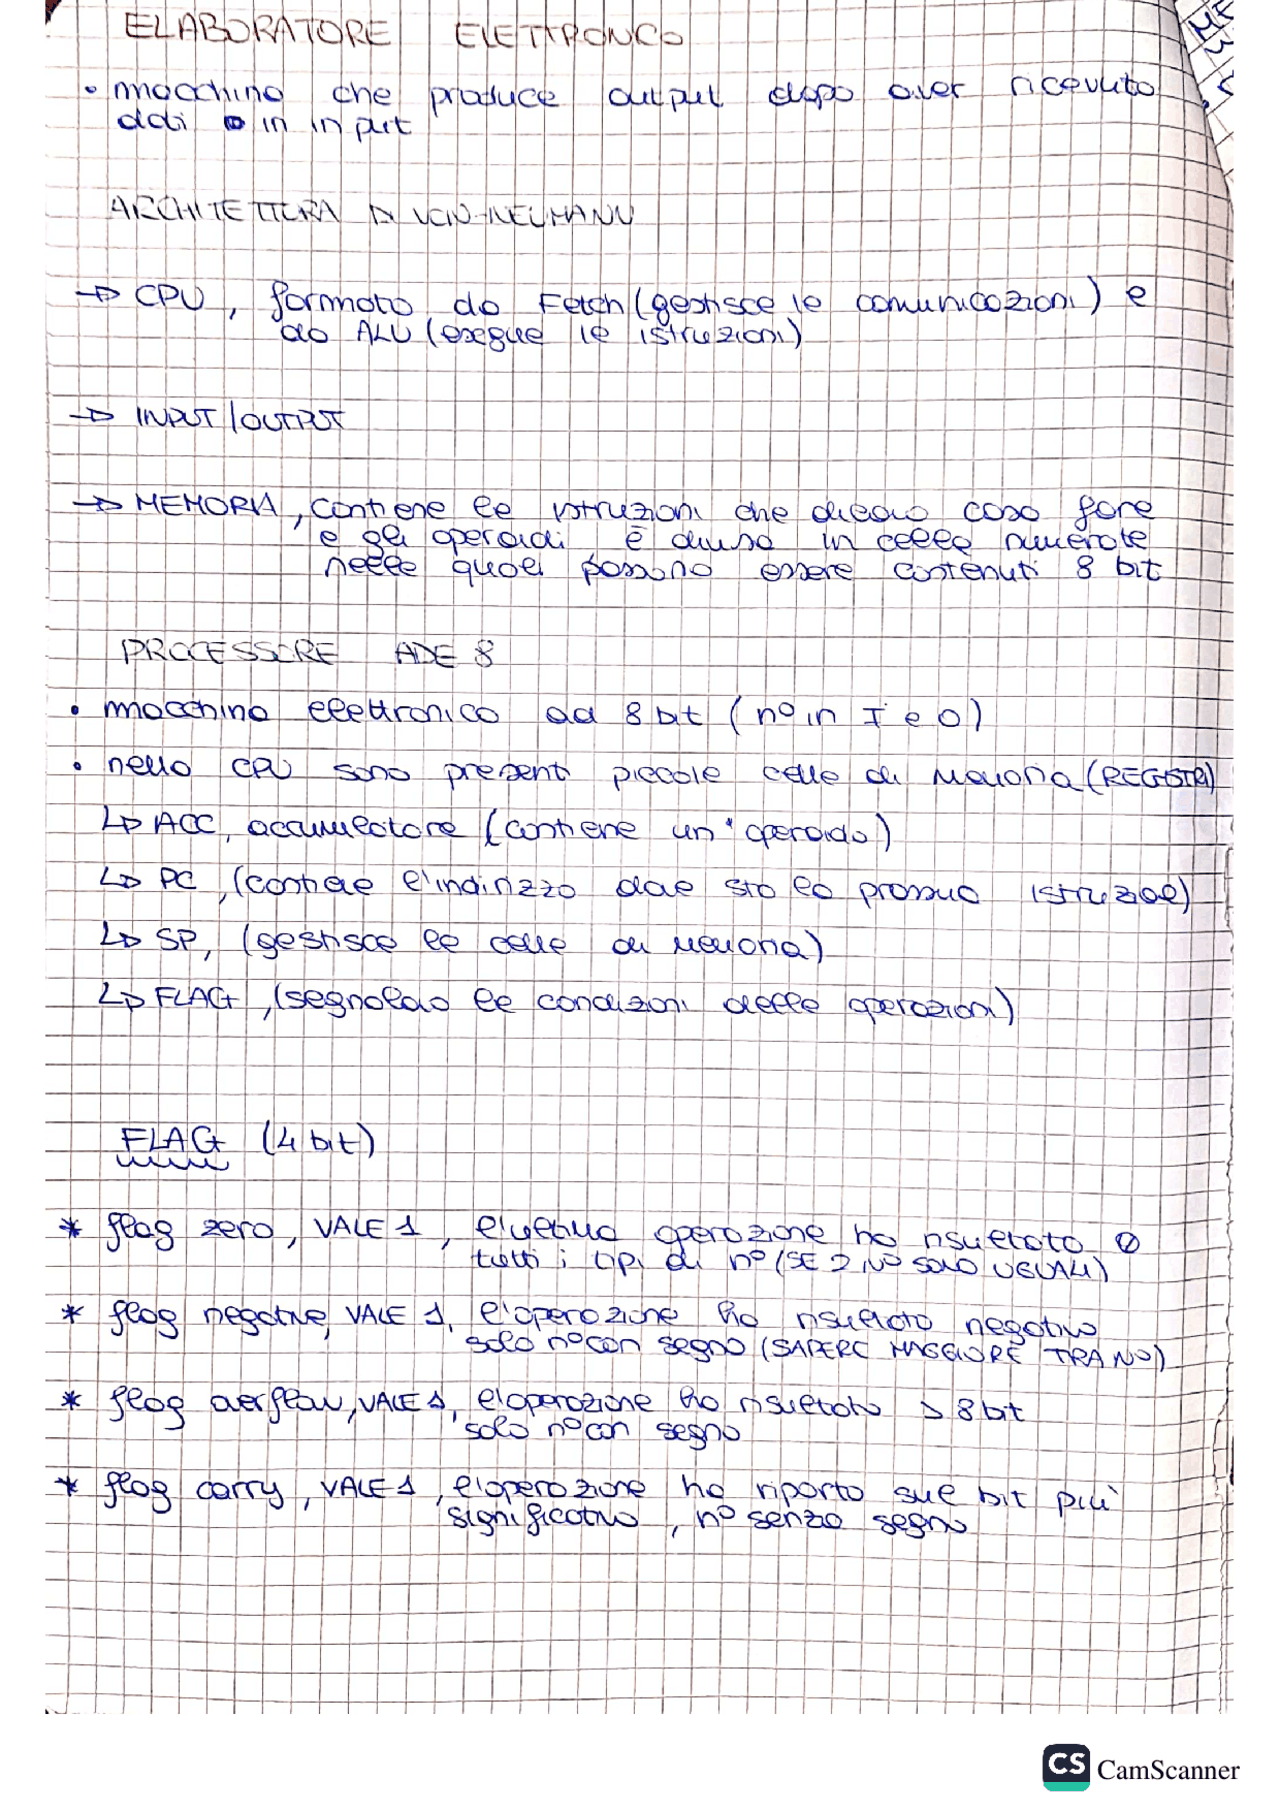 ELABORATORE ELETTRONCO
• macchina che produce output dopo aver ricevuto
dati in input
ARCHITETTURA DI VON-NEUMANN
→ CPU, formato da Fetch (gestisce le comunicazioni) e
da ALU (esegue le istruzioni)
→ INPUT/OUTPUT
→ MEMORIA, contiene le istruzioni che dicono cosa fare
e gli operandi è divisa in celle numerate
nelle quali possono essere contenuti 8 bit
PROCESSORE ADE 8
• macchina elettronica ad 8 bit (n° in I e 0)
• nella CPU sono presenti piccole celle di memoria (REGISTRI)
↳ ACC, accumulatore (contiene un' operando)
↳ PC, (contiene l'indirizzo dove sta la prossima istruzione)
↳ SP, (gestisce le celle di memoria)
↳ FLAG, (segnalano le condizioni delle operazioni)
FLAG (4 bit)
* flag zero, VALE 1, l'ultima operazione ha risultato 0
tutti i tipi di n° (SE 2 N° SONO UGUALI)
* flag negative, VALE 1, l'operazione ha risultato negativo
solo n° con segno (SAPERE MAGGIORE TRA N°)
* flag overflow, VALE 1, l'operazione ha risultato > 8 bit
solo n° con segno
* flag carry, VALE 1, l'operazione ha riporto sul bit più
significativo, n° senza segno
CS CamScanner